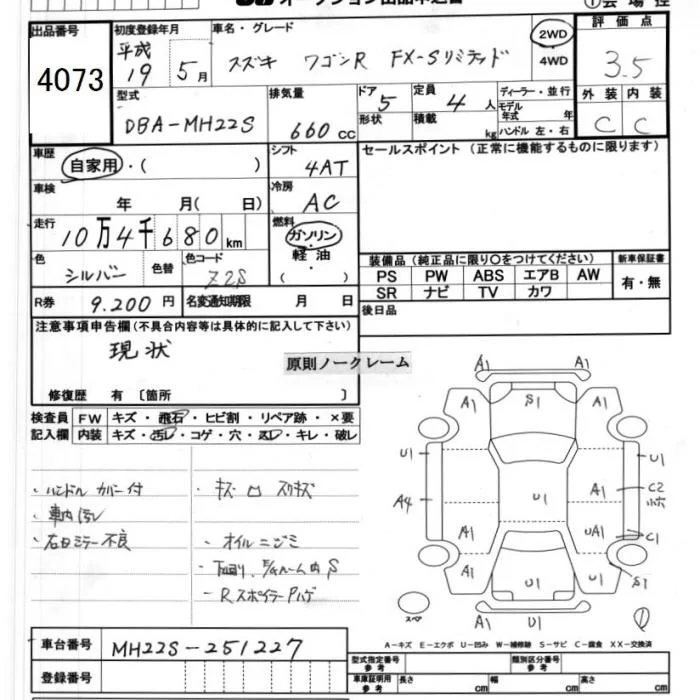 オークション出品申込書
①会場控
出品番号
4073
初度登録年月
平成
19 5月
車名・グレード
スズキ ワゴンR FX-Sリミテッド
2WD
4WD
評価点
3.5
外装 内装
C C
型式
DBA-MH22S
排気量
660cc
ドア 5
形状
定員 4人
積載 kg
ディーラー・並行
モデル年式 年
ハンドル 左・右
車歴
自家用・( )
シフト
4AT
セールスポイント (正常に機能するものに限ります)
車検
年 月( 日)
冷房
AC
走行
10万4千680km
燃料
ガソリン・
軽油・
( )
色
シルバー
色替
色コード
Z2S
装備品(純正品に限り○をつけてください)
新車保証書
PS PW ABS エアB AW
SR ナビ TV カワ
有・無
R券 9.200円
名変通知期限 月 日
後日品
注意事項申告欄(不具合内容等は具体的に記入して下さい)
現状
原則ノークレーム
修復歴 有〔箇所 〕
検査員
記入欄
FW キズ・飛石・ヒビ割・リペア跡・×要
内装 キズ・汚レ・コゲ・穴・スレ・キレ・破レ
・ハンドルカバー付
・車内汚レ
・右日ミラー不良
・オイルニジミ
・Rスポイラー Pハゲ
A1 A1
A1 S1 A1
U1 U1
A4 U1 A1 C2
A1 UA1 C1
A1 U1 A1 S1
A1 U1 A1
スペア
②
A-キズ E-エクボ U-凹み W-補修跡 S-サビ C-腐食 XX-交換済
車台番号
MH22S-251227
登録番号
型式指定番号
参考
類別区分番号
参考
車庫証明用
参考
長さ cm
幅 cm
高さ cm